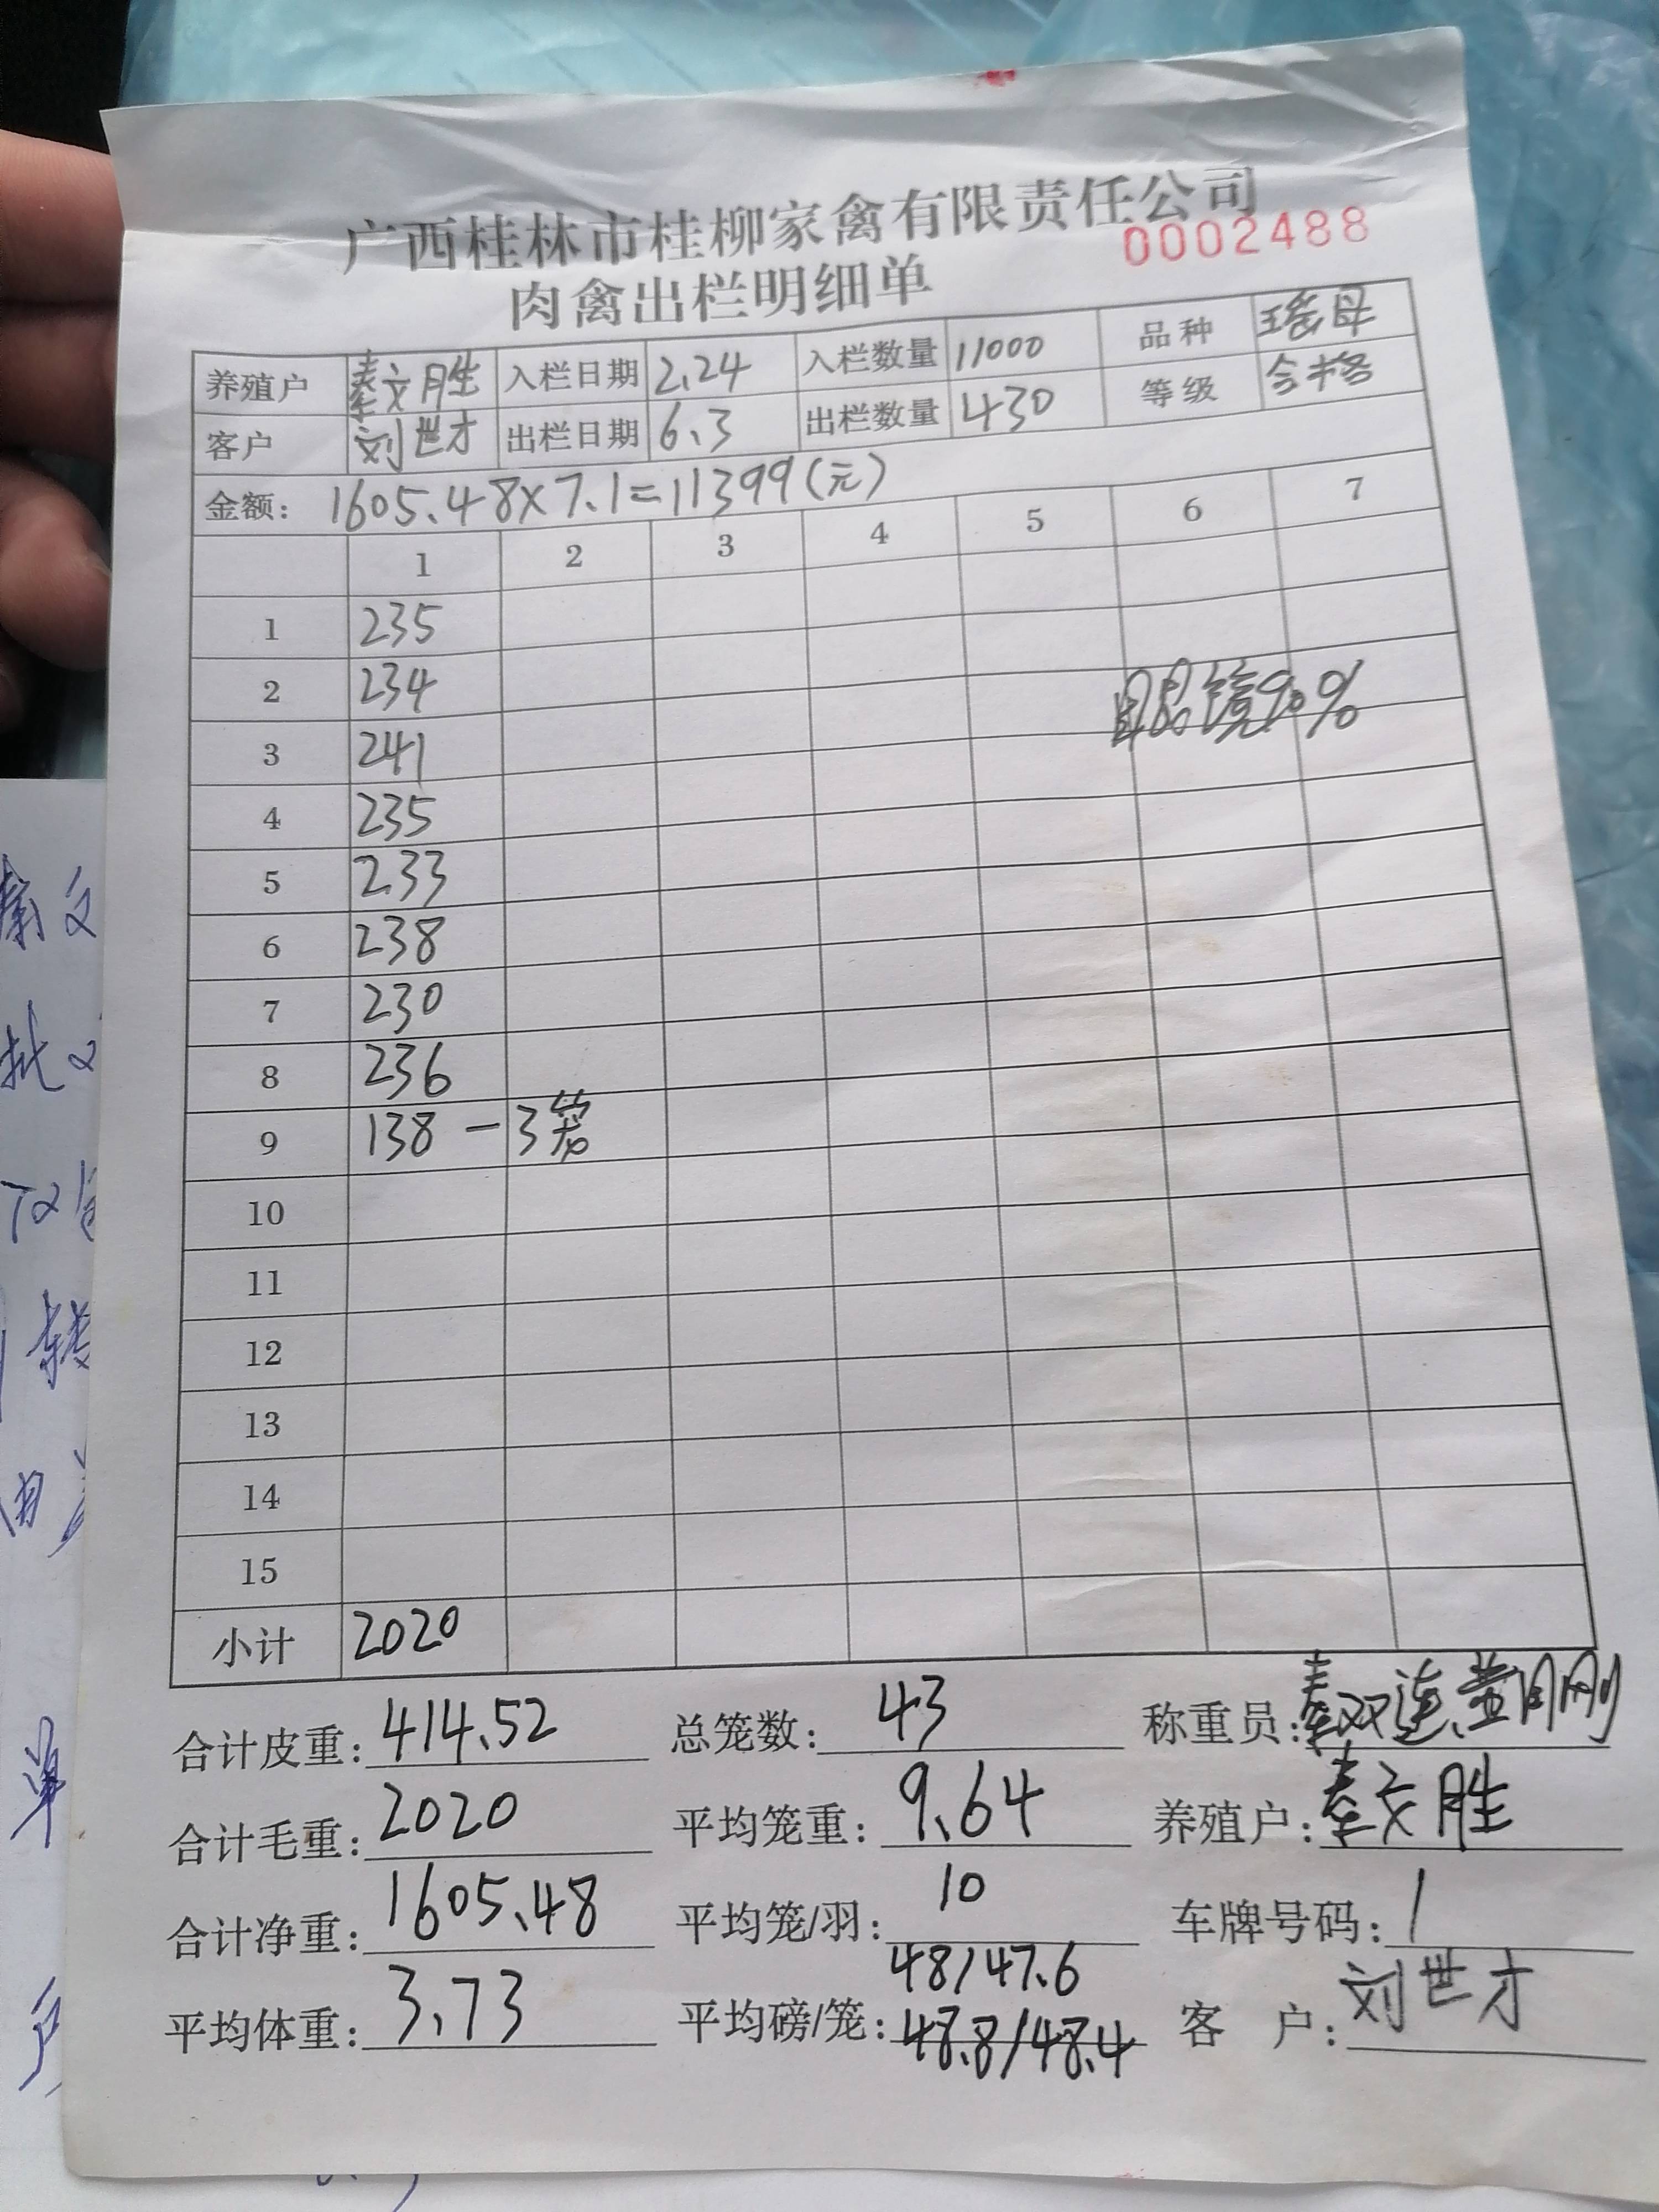 广西桂林市桂柳家禽有限责任公司
0002488
肉禽出栏明细单
养殖户 秦文胜 入栏日期 2.24 入栏数量 11000 品种 瑶母
客户 刘世才 出栏日期 6.3 出栏数量 430 等级 合格
金额: 1605.48×7.1=11399(元)
1 2 3 4 5 6 7
1 235
2 234 眼镜90%
3 241
4 235
5 233
6 238
7 230
8 236
9 138 — 3笼
10
11
12
13
14
15
小计 2020
合计皮重: 414.52 总笼数: 43 称重员: 秦双连、黄刚
合计毛重: 2020 平均笼重: 9.64 养殖户: 秦文胜
合计净重: 1605.48 平均笼/羽: 10 车牌号码: 1
48/47.6
平均体重: 3.73 平均磅/笼: 48.8/48.4 客户: 刘世才